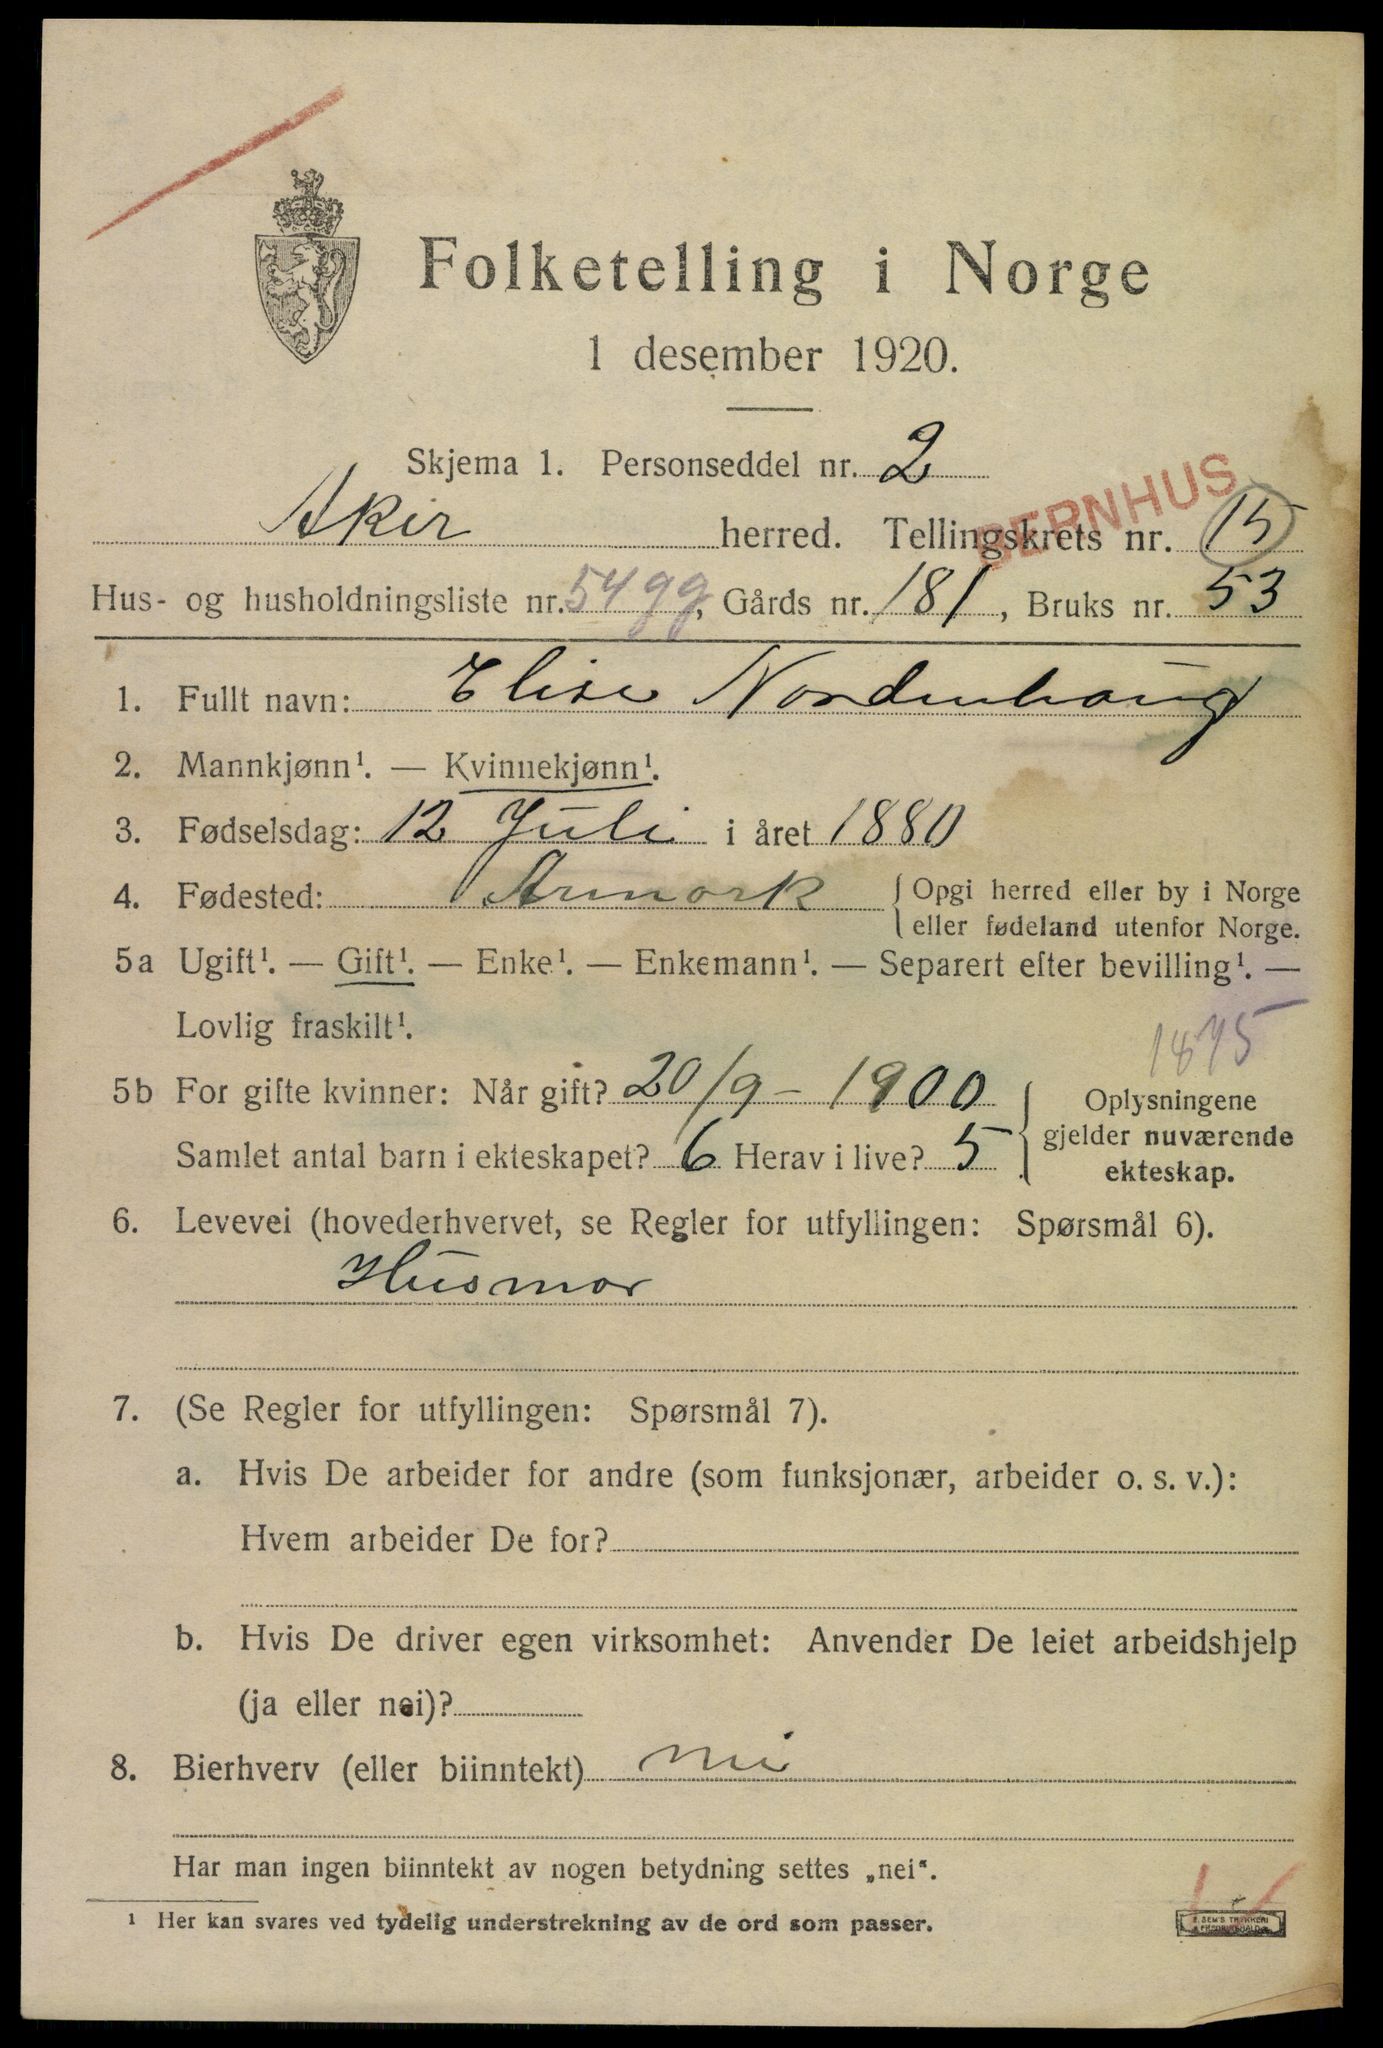 Folketelling i Norge
1 desember 1920.
Skjema 1. Personseddel nr. 2
BERNHUS
Aker herred. Tellingskrets nr. 15
Hus- og husholdningsliste nr. 5499, Gårds nr. 181, Bruks nr. 53
1. Fullt navn: Elise Nordenhaug
2. Mannkjønn¹. — Kvinnekjønn¹.
3. Fødselsdag: 12 Juli i året 1880
4. Fødested: Aremark { Opgi herred eller by i Norge
eller fødeland utenfor Norge.
5a Ugift¹. — Gift¹. — Enke¹. — Enkemann¹. — Separert efter bevilling¹. —
Lovlig fraskilt¹.
1875
5b For gifte kvinner: Når gift? 20/9 - 1900
Samlet antal barn i ekteskapet? 6 Herav i live? 5
Oplysningene
gjelder nuværende
ekteskap.
6. Levevei (hovederhvervet, se Regler for utfyllingen: Spørsmål 6).
Husmor
7. (Se Regler for utfyllingen: Spørsmål 7).
a. Hvis De arbeider for andre (som funksjonær, arbeider o. s. v.):
Hvem arbeider De for?
b. Hvis De driver egen virksomhet: Anvender De leiet arbeidshjelp
(ja eller nei)?
8. Bierhverv (eller biinntekt) nei
Har man ingen biinntekt av nogen betydning settes „nei“.
¹ Her kan svares ved tydelig understrekning av de ord som passer.
E. SEM'S TRYKKERI
FREDRIKSHALD